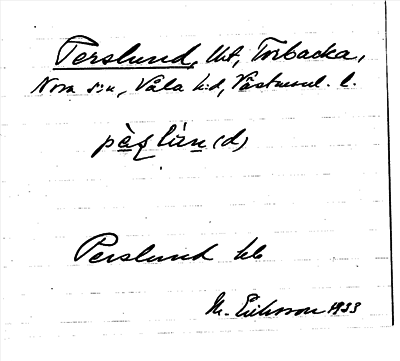 Perslund, lht, Torbacka,
Nora s:n, Våla h:d, Västmanl. l.
pàʂlún(d)
Perslund hb
M. Eriksson 1933